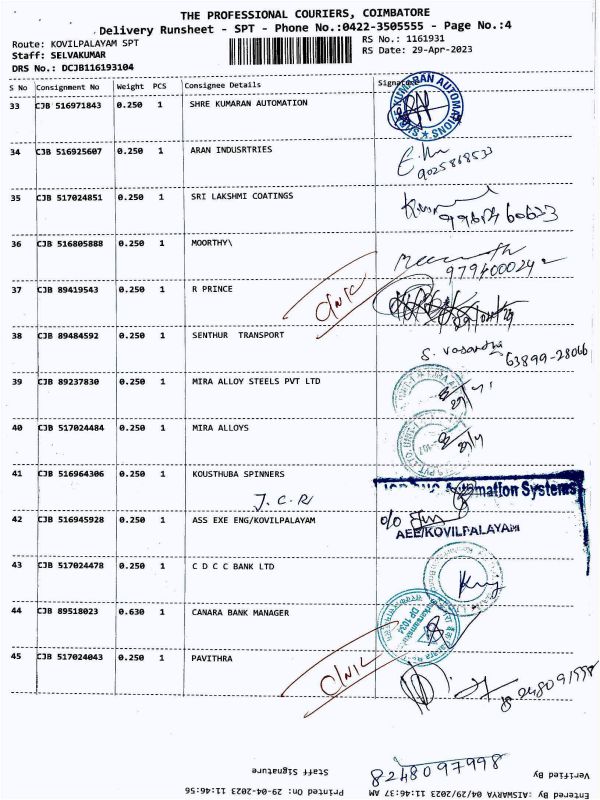 THE PROFESSIONAL COURIERS, COIMBATORE
Delivery Runsheet - SPT - Phone No.:0422-3505555 - Page No.:4
Route: KOVILPALAYAM SPT
RS No.: 1161931
Staff: SELVAKUMAR
RS Date: 29-Apr-2023
DRS No.: DCJB116193104
S No Consignment No Weight PCS Consignee Details Signature
33 CJB 516971843 0.250 1 SHRE KUMARAN AUTOMATION
34 CJB 516925607 0.250 1 ARAN INDUSRTRIES
9025868533
35 CJB 517024851 0.250 1 SRI LAKSHMI COATINGS
36 CJB 516805888 0.250 1 MOORTHY\
9794000242
37 CJB 89419543 0.250 1 R PRINCE
38 CJB 89484592 0.250 1 SENTHUR TRANSPORT
S. Vasantha
63899-28066
39 CJB 89237830 0.250 1 MIRA ALLOY STEELS PVT LTD
40 CJB 517024484 0.250 1 MIRA ALLOYS
41 CJB 516964306 0.250 1 KOUSTHUBA SPINNERS
Automation Systems
J.C.R
42 CJB 516945928 0.250 1 ASS EXE ENG/KOVILPALAYAM
AEE/KOVILPALAYAM
43 CJB 517024478 0.250 1 C D C C BANK LTD
44 CJB 89518023 0.630 1 CANARA BANK MANAGER
DP 1034
45 CJB 517024043 0.250 1 PAVITHRA
8248091998
8248097998
Staff Signature
Verified By
Printed On: 29-04-2023 11:46:56
Entered By :AISWARYA 04/29/2023 11:46:37 AM